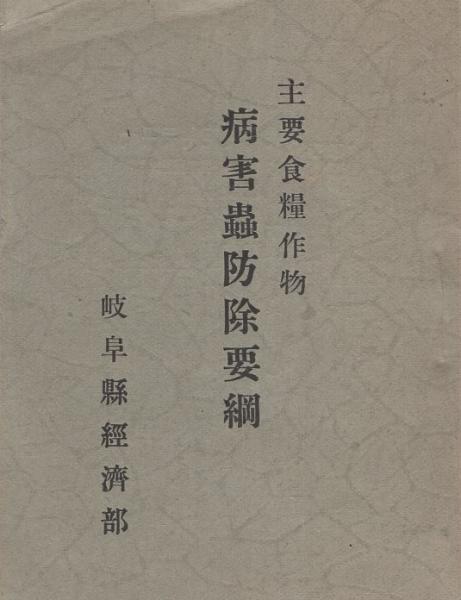 主要食糧作物
病害蟲防除要綱
岐阜縣經濟部